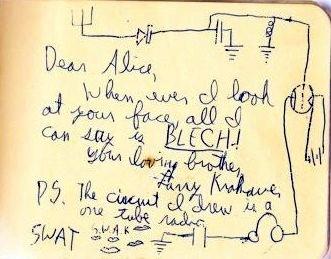 Dear Alice,
When ever I look
at your face, all I
can say is BLECH!
your loving brother,
Krakauer
P.S. The circuit I drew is a
one tube radio.
SWAT S.W.A.K